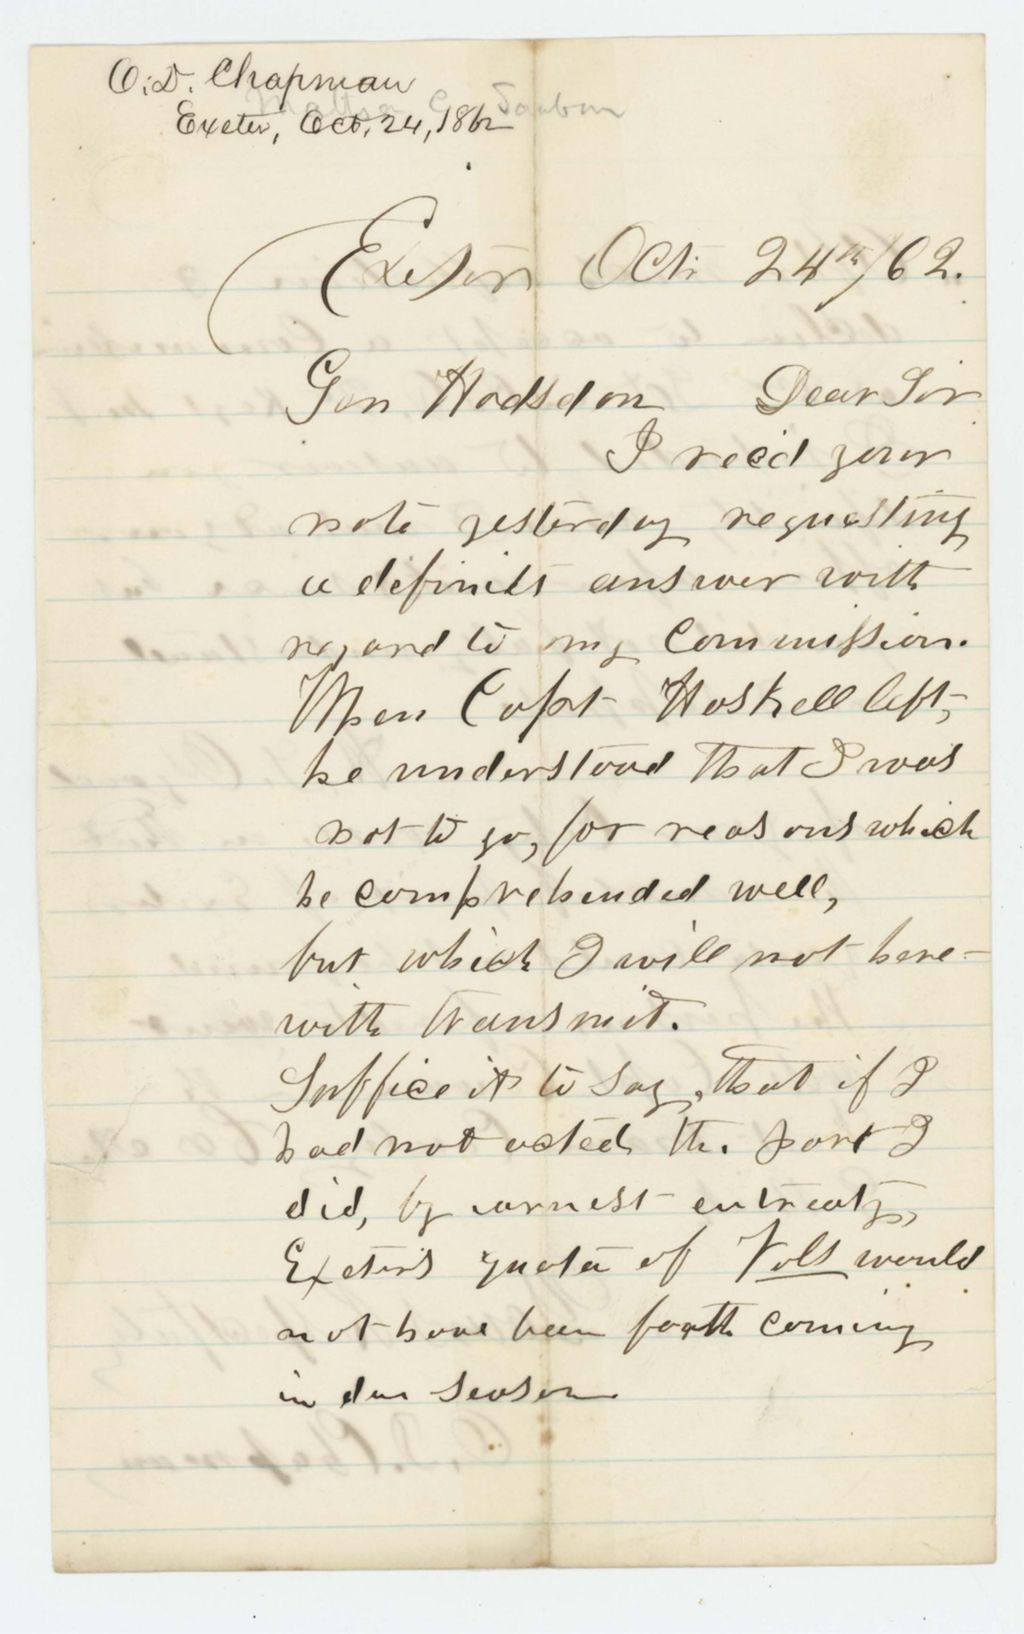 O. D. Chapman
Exeter, Oct. 24, 1862
Exeter Oct. 24th/62.
Gen Hodsdon Dear Sir
I rec'd your
note yesterday requesting
a definite answer with
regard to my Commission.
When Capt Haskell left,
he understood that I was
not to go, for reasons which
he comprehended well,
but which I will not here-
with transmit.
Suffice it to say, that if I
had not acted the part I
did, by earnest entreaty,
Exeter's quota of Vols would
not have been forth coming
in due season.